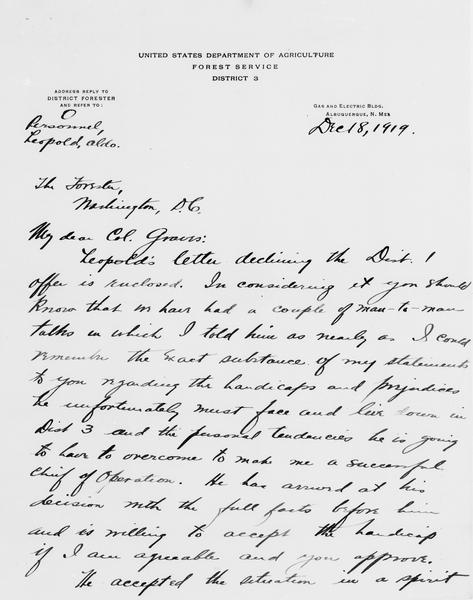 UNITED STATES DEPARTMENT OF AGRICULTURE
FOREST SERVICE
DISTRICT 3
ADDRESS REPLY TO
DISTRICT FORESTER
AND REFER TO:
GAS AND ELECTRIC BLDG.
ALBUQUERQUE, N. MEX
O
Personnel,
Leopold, Aldo.
Dec 18, 1919.
The Forester,
Washington, D.C.
My dear Col. Graves:
Leopold's letter declining the Dist. 1
offer is enclosed. In considering it you should
know that we have had a couple of man-to-man
talks in which I told him as nearly as I could
remember the exact substance of my statements
to you regarding the handicaps and prejudices
he unfortunately must face and live down in
Dist 3 and the personal tendencies he is going
to have to overcome to make me a successful
Chief of Operation. He has arrived at his
decision with the full facts before him
and is willing to accept the handicap
if I am agreeable and you approve.
He accepted the situation in a spirit